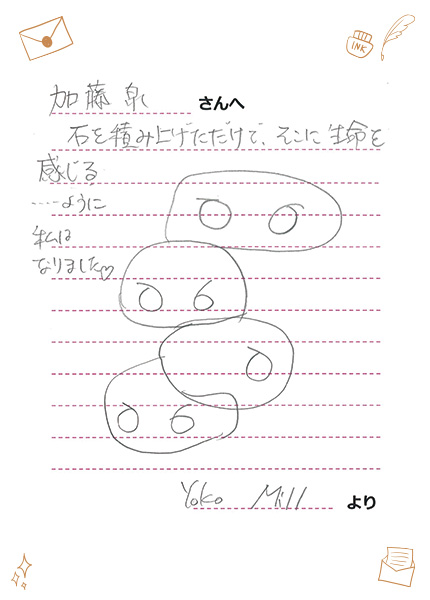 INK
加藤 泉 さんへ
石を積み上げただけで、そこに生命を
感じる
……ように
私は
なりました♡
Yoko Mill より